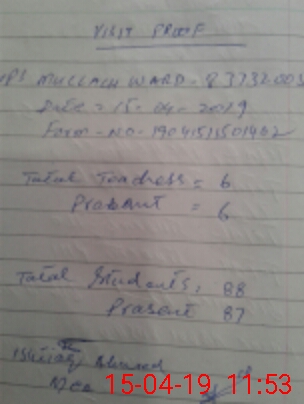 VISIT PROOF
MULLAH WARD - 83732003
Date = 15-04-2019
Form - NO - 19041511501402
Total Teachess = 6
Present = 6
Total Students, 88
Present 87
Ahmed
15-04-19 11:53